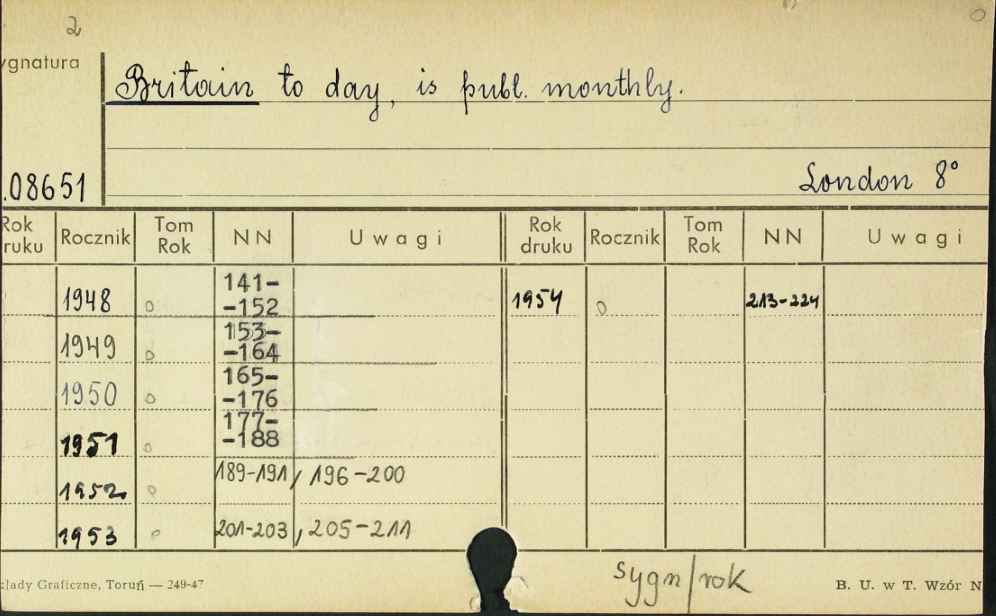 2
ygnatura
Britain to day, is publ. monthly.
.08651
London 8°
Rok ruku Rocznik Tom Rok NN Uwagi Rok druku Rocznik Tom Rok NN Uwagi
1948 o 141-
-152
1954 o 213-224
1949 o 153-
-164
1950 o 165-
-176
1951 o 177-
-188
1952 o 189-191, 196-200
1953 o 201-203, 205-211
sygn/rok
kłady Graficzne, Toruń — 249-47
B. U. w T. Wzór N